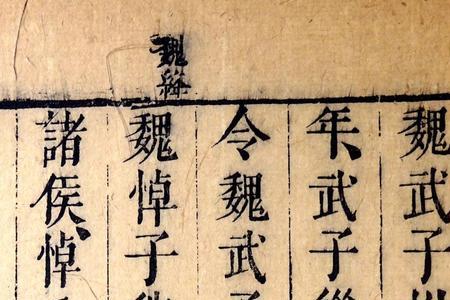 魏絳
魏武子
年、武子
令魏武子
魏悼子
諸侯、悼